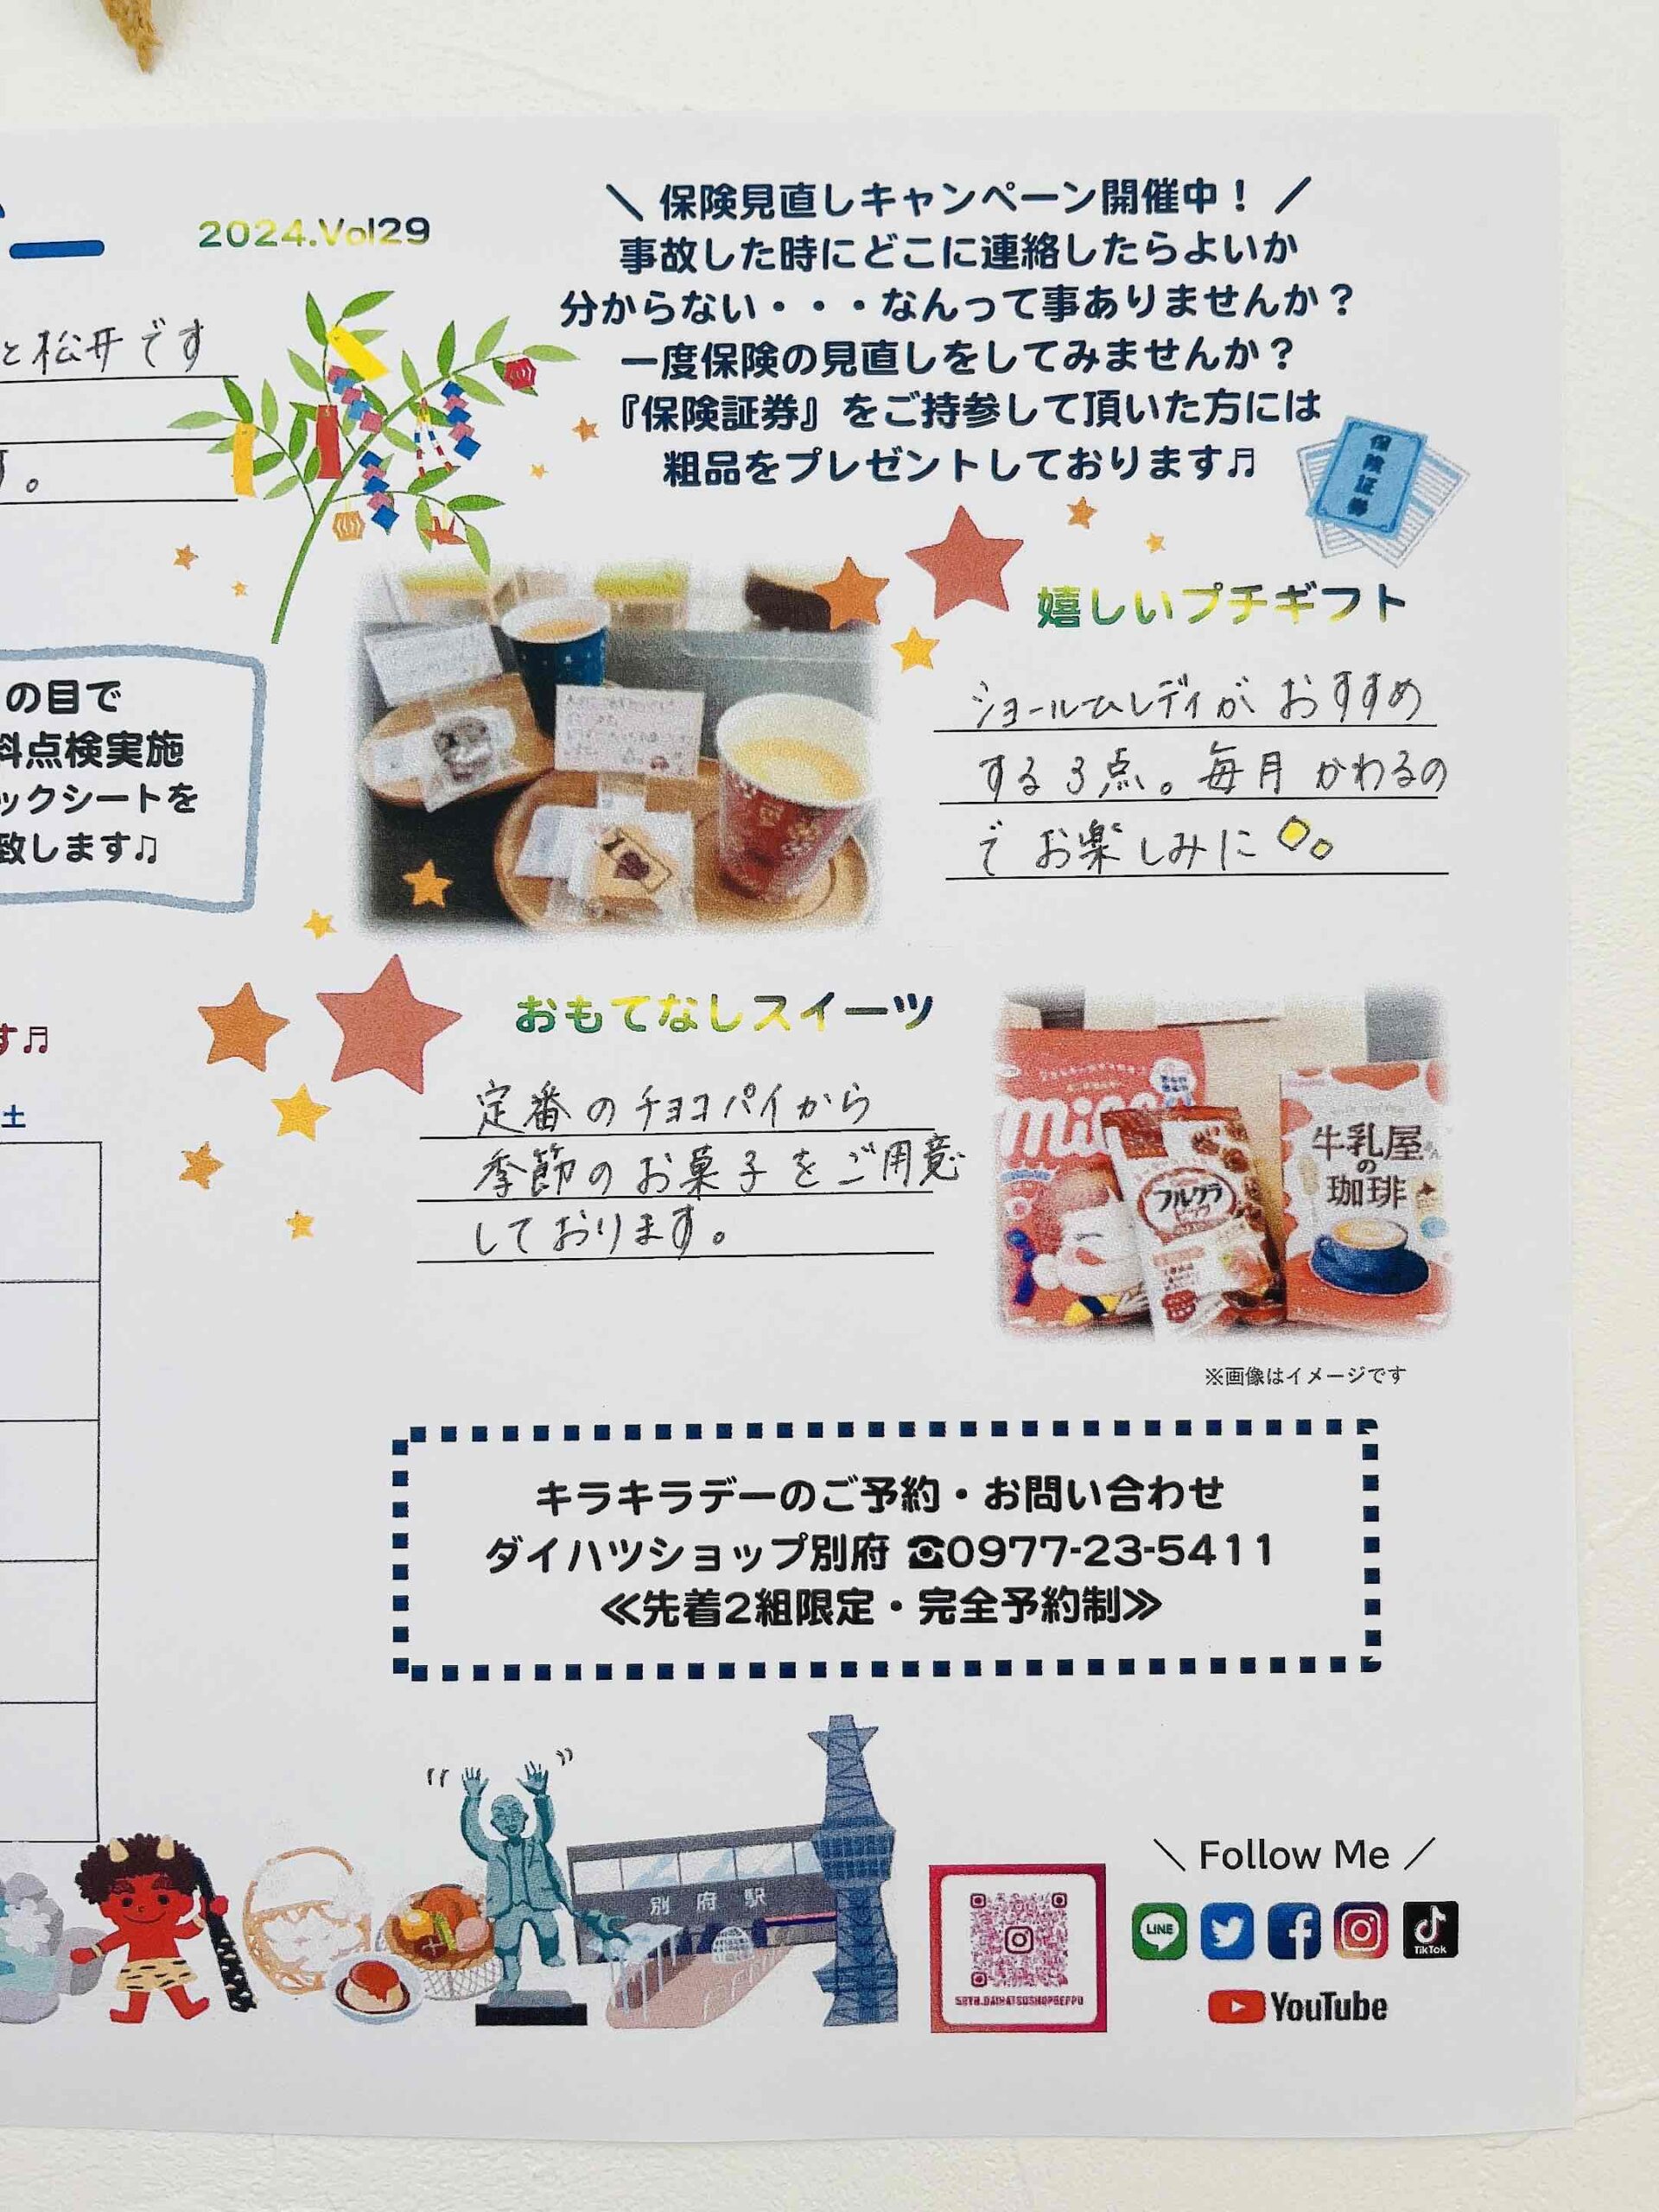 2024.Vol29
と松井です
す。
の目で
料点検実施
ックシートを
致します♫
す♬
土
＼ 保険見直しキャンペーン開催中！ ／
事故した時にどこに連絡したらよいか
分からない・・・なんって事ありませんか？
一度保険の見直しをしてみませんか？
『保険証券』をご持参して頂いた方には
粗品をプレゼントしております♬
保険証券
嬉しいプチギフト
ショールームレディがおすすめ
する3点。毎月かわるの
でお楽しみに
おもてなしスイーツ
定番のチョコパイから
季節のお菓子をご用意
しております。
フルグラ
牛乳屋
の
珈琲
※画像はイメージです
キラキラデーのご予約・お問い合わせ
ダイハツショップ別府 ☎0977-23-5411
≪先着2組限定・完全予約制≫
別府駅
＼ Follow Me ／
LINE
TikTok
YouTube